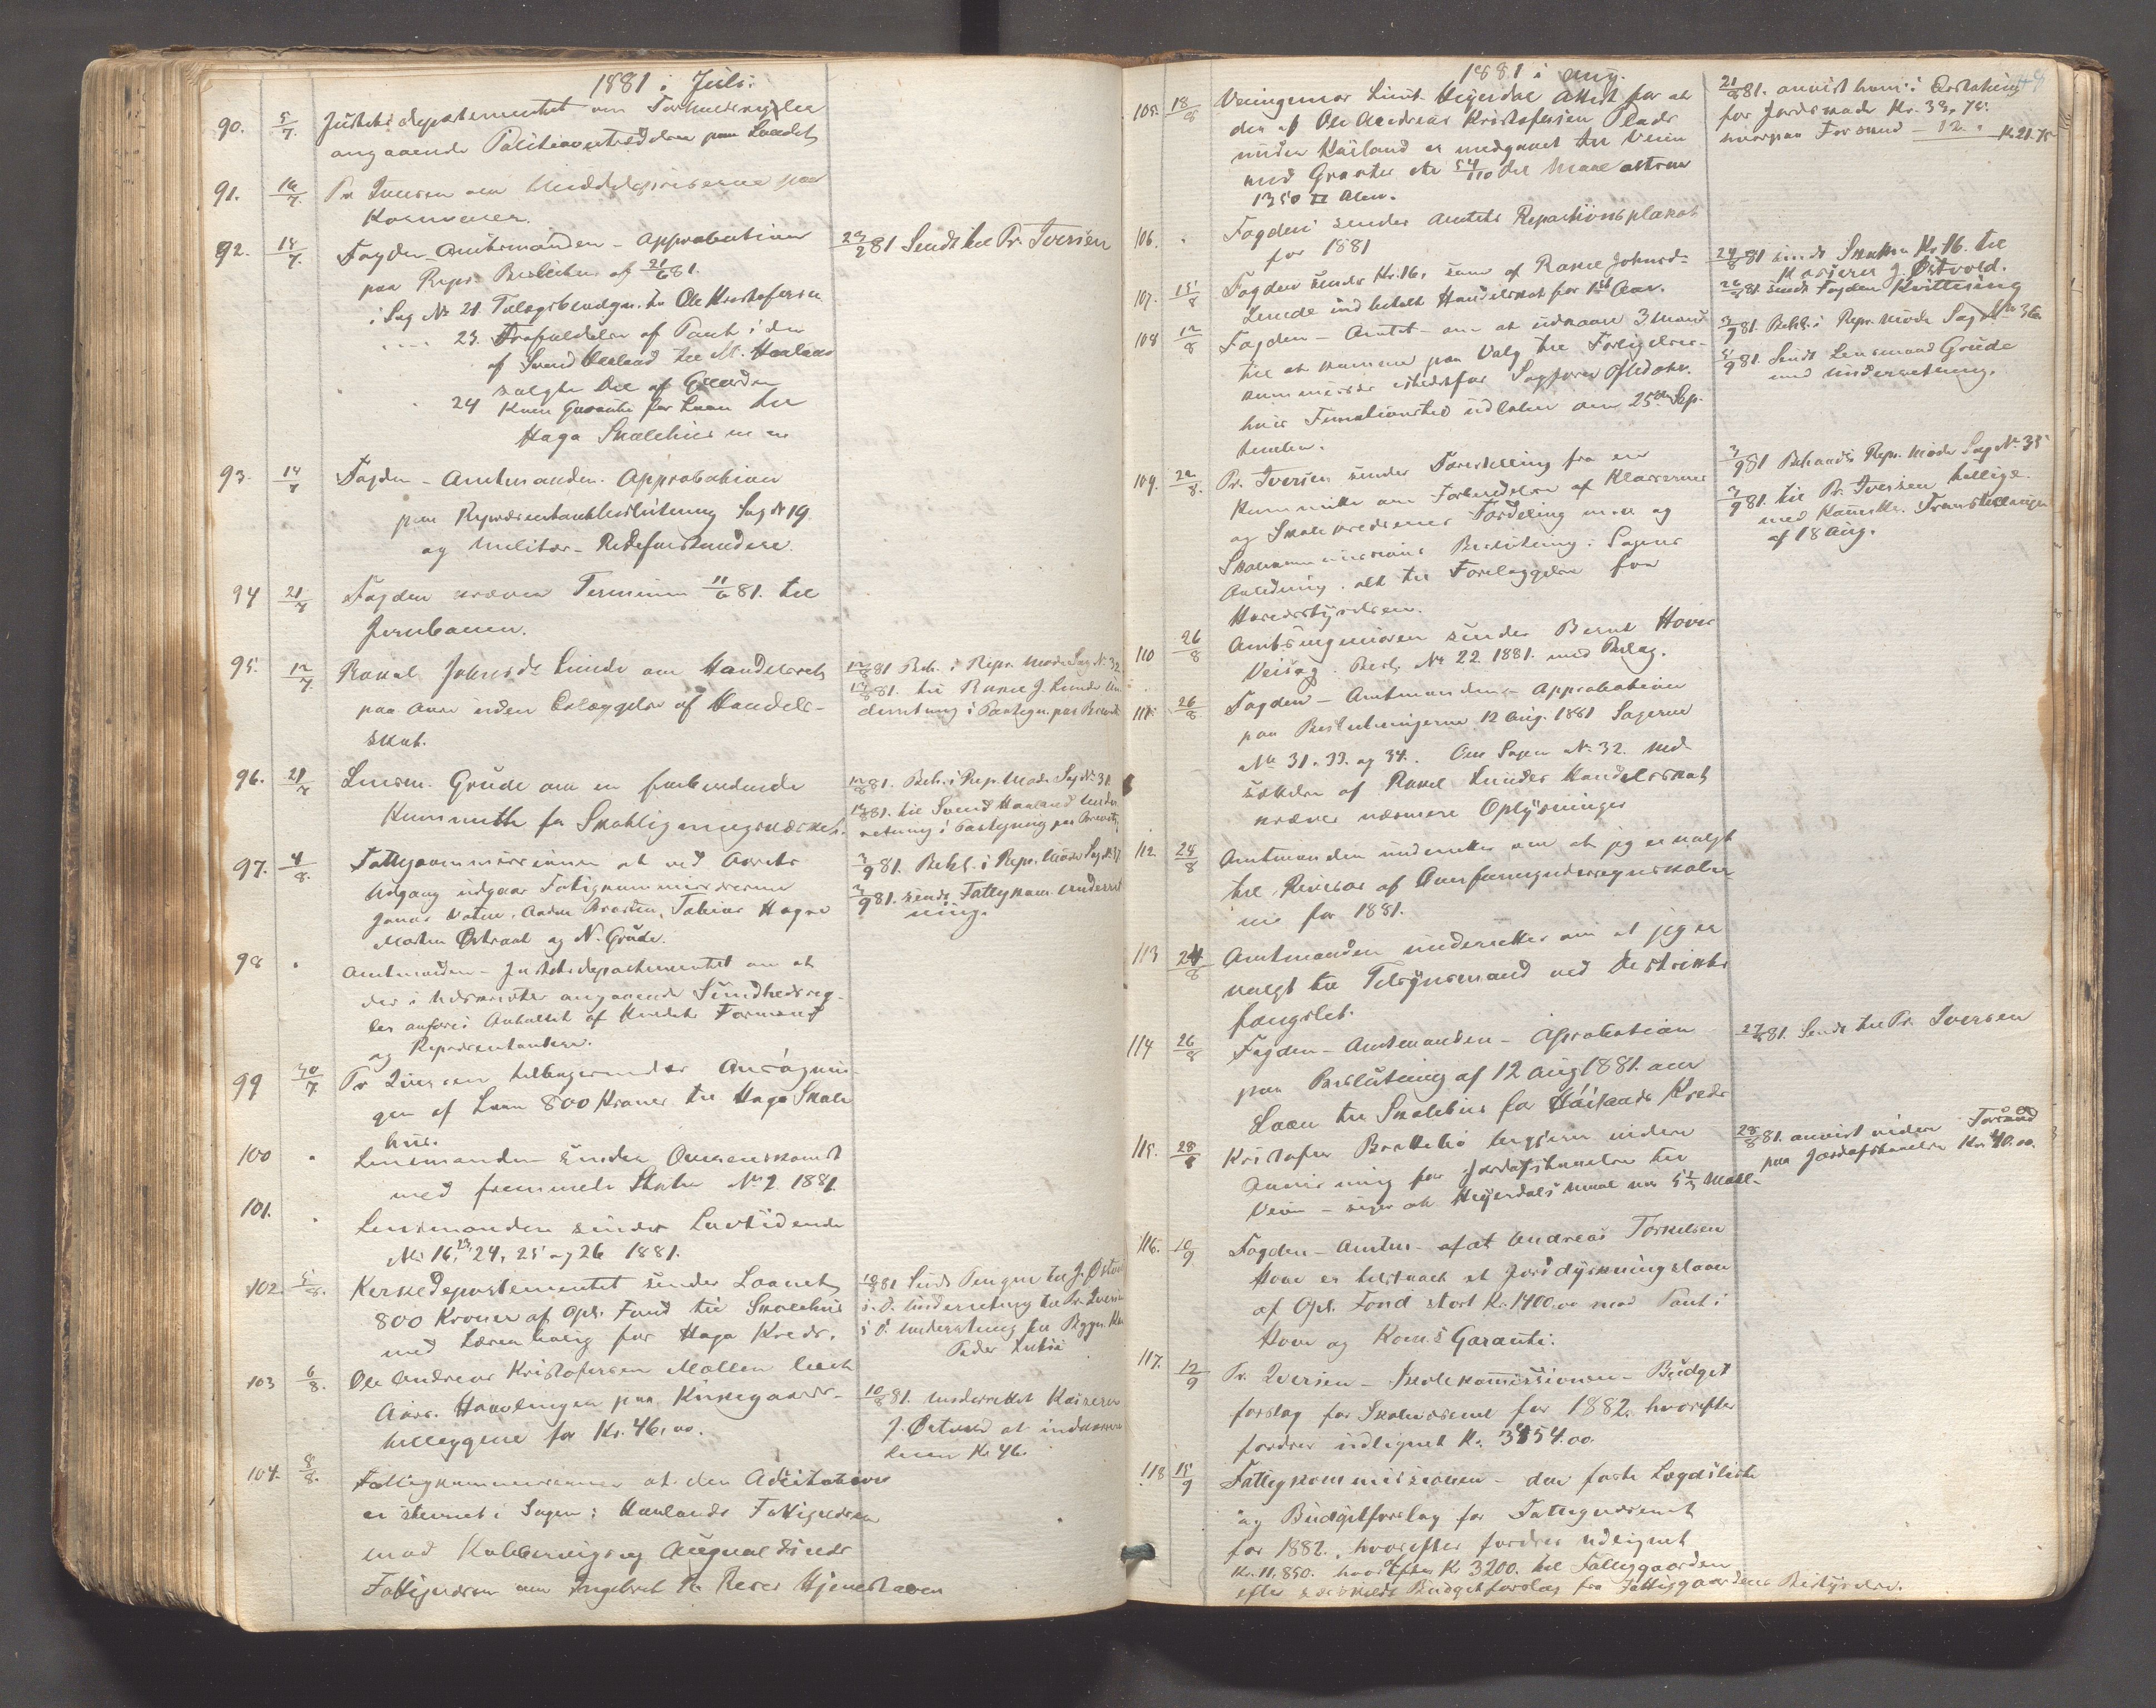 1881 i Juli.
90. 5/7. Justitsdepartementet om Forholdsregler
angaaende Politiouvæsenet paa Landet
91. 14/7. Pr Iversen om Middelpriserne paa
Kornvarer.
92. 14/7. Fogden - Amtmanden - Approbation
paa Repr. Beslutning af 21/6 81.
i Sag No 21 til Ole Kristofersen
23. Frafaldelse af Pant i den
af Svend Haaland til M. Haaland
solgte Del af Gaarden
24 Kom Garanti for Laan til
Haga Skolehus m m
23/7 81 Sendt til Pr. Iversen
93. 14/7 Fogden - Amtmanden. Approbation
paa Repræsentantbeslutning Sag No 19
og Militær-
94 21/7 Fogden kræver Terminen 11/6 81. til
Jernbanen.
95. 12/7. Rakel Johnsdr Lunde om Handelsret
paa Aare uden Erlæggelse af Handels-
skat.
12/8 81 Beh. i Repr. Møde Sag No 32
13/8 81. til Rakel J. Lunde Un-
derretning i
96. 21/7 Lensm. Grude om en forberedende
Kommitte for Skatligningsvæsenet.
12/8 81. Beh. i Rep. Møde Sag No 31
13/8 81. til Svend Haaland Under-
retning i
97. 4/8. Fattigkommissionen at ved Aarets
Udgang udgaar Fattigkommissærerne
Jonas Vatne, Tobias Hogne
Morten Østraat og N. Grude.
3/9 81. Behl. i Repr. Møde Sag No 37
3/9 81. sendt Fattigkom. Underret-
ning.
98 " Amtmanden - Justitsdepartementet om at
der i Udskrifter angaaende Sundhedsreg-
ler anføres Antallet af Formænd
og Repræsentanter.
99 30/7. Pr Iversen tilbagesender Ansøgnin-
gen af Laan 800 Kroner til Haga Skole
hus.
100 " Lensmanden sender Overenskomst
med fremmede Stater No 2. 1881.
101. " Lensmanden sender Lovtidende
No 16, 23, 24, 25 og 26 1881.
102. 5/8. Kirkedepartementet sender Laanet
800 Kroner af Opl. Fond til Skolehus
med Lærerbolig for Haga Kreds.
10/8 81 Sendt Pengene til J. Østvold
s. D. Underretning til Pr. Iversen
s D. Underretning til Byggm.
Peder
103 6/8. Ole Andreas Kristofersen Malken
Aars. paa Kirkegaards-
tillæggene for Kr. 46,00.
10/8 81. underrettet Kasserer
J. Østvold at indkassere
Kr 46.
104. 8/8. Fattigkommissionen at den Aõcitation
er stevnet i Sagen: Haalands Fattigvæsen
mod og Augvaldsnæs
Fattigvæsen om Reser Hjemstavn

1881 i Aug.
105. 18/8 Veiingeniør Lieut. Heyerdal Attest for at
der af Ole Andreas Kristofersen Plads
under Haaland er medgaaet til Veien
med Grøfter etc 54/110 del Maal eller
1350 □ Alen.
21/8 81. anvist ham i Erstatning
for Jordskade Kr. 33,75.
hvorpaa Forskud - 12. " Kr. 21.75
106. " Fogden sender Amtets Repartitionsplakat
for 1881
107. 15/8 Fogden sender Kr. 16, som af Rakel Johnsd.
Lunde indbetalt Handelskat for 1st Aar.
24/8 81 sendt Skatten Kr 16. til
Kasserer J. Østvold.
24/8 81. sendt Fogden Kvittering
108 12/8 Fogden - Amtet - om at udnævne 3 Mænd
til at komme paa Valg til Forligelses-
kommissær istedetfor Sagfører
hvis Funktionstid udløber om 25de Sep-
tember.
3/9 81. Behl. i Repr. Møde Sag No 36.
5/9 81. Sendt Lensmand Grude
med Underretning.
109. 22/8. Pr. Iversen sender Forestilling fra en
Kommitte om Forbedelse af Klasserne
og Skolekredsenes Fordeling m.m og
Skolekommissionens Beslutning i Sagens
Anledning. alt til Forelæggelse for
Herredsstyrelsen.
3/9 81 Behandl. Repr. Møde Sag No 35
7/9 81. til Pr. Iversen tillige
med Komite. Fremstillingen
af 18 Aug.
110 26/8 Amtsingeniøren sender Bernt Hoves
Veisag. Besl. No 22. 1881. med Bilag.
111. 26/8 Fogden - Amtmanden - Approbation
paa Beslutningerne 12 Aug. 1881 Sagerne
No 31. 33. og 34. Om Sagen No 32. Ned-
sættelse af Rakel Lundes Handelsskat
kræves nærmere Oplysninger
112 24/8 Amtmanden underretter om at jeg er valgt
til Revisor af Overformynderregnskaber-
ne for 1881.
113 24/8 Amtmanden underretter om at jeg er
valgt til Tilsynsmand ved Distrikts
fængslet.
114 26/8 Fogden - Amtmanden - Approbation
paa Beslutning af 12 Aug 1881. om
Laan til Skolehus for Haalands Kreds
27/8 81. Sendt til Pr. Iversen
115. 28/8 Kristofer Brattebø begjærer videre
Anvisning for Jordafstaaelse til
Veien - siger at Heyerdals Maal var 5 1/2 Maal.
28/8 81. anvist videre Forskud
paa Jordafstaaelse Kr. 40.00.
116. 10/9 Fogden - Amtm. - at Andreas Torkelsen
Hove er tilstaaet et Jorddyrkningslaan
af Opl. Fond stort Kr. 1400.00 mod Pant i
Hove og Koms Garanti.
117. 12/9 Pr. Iversen - Skolekommissionen - Budget
forslag for Skolevæsenet for 1882. hvorefter
fordres udlignet Kr. 3454.00.
118 15/9 Fattigkommissionen - den faste Lægdsliste
og Budgetforslag for Fattigvæsenet
for 1882., hvorefter fordres udlignet
Kr. 11,850. hvoraf Kr 3200. til Fattiggaarden
efter Budgetforslag fra Fattiggaardens Bestyrelse.